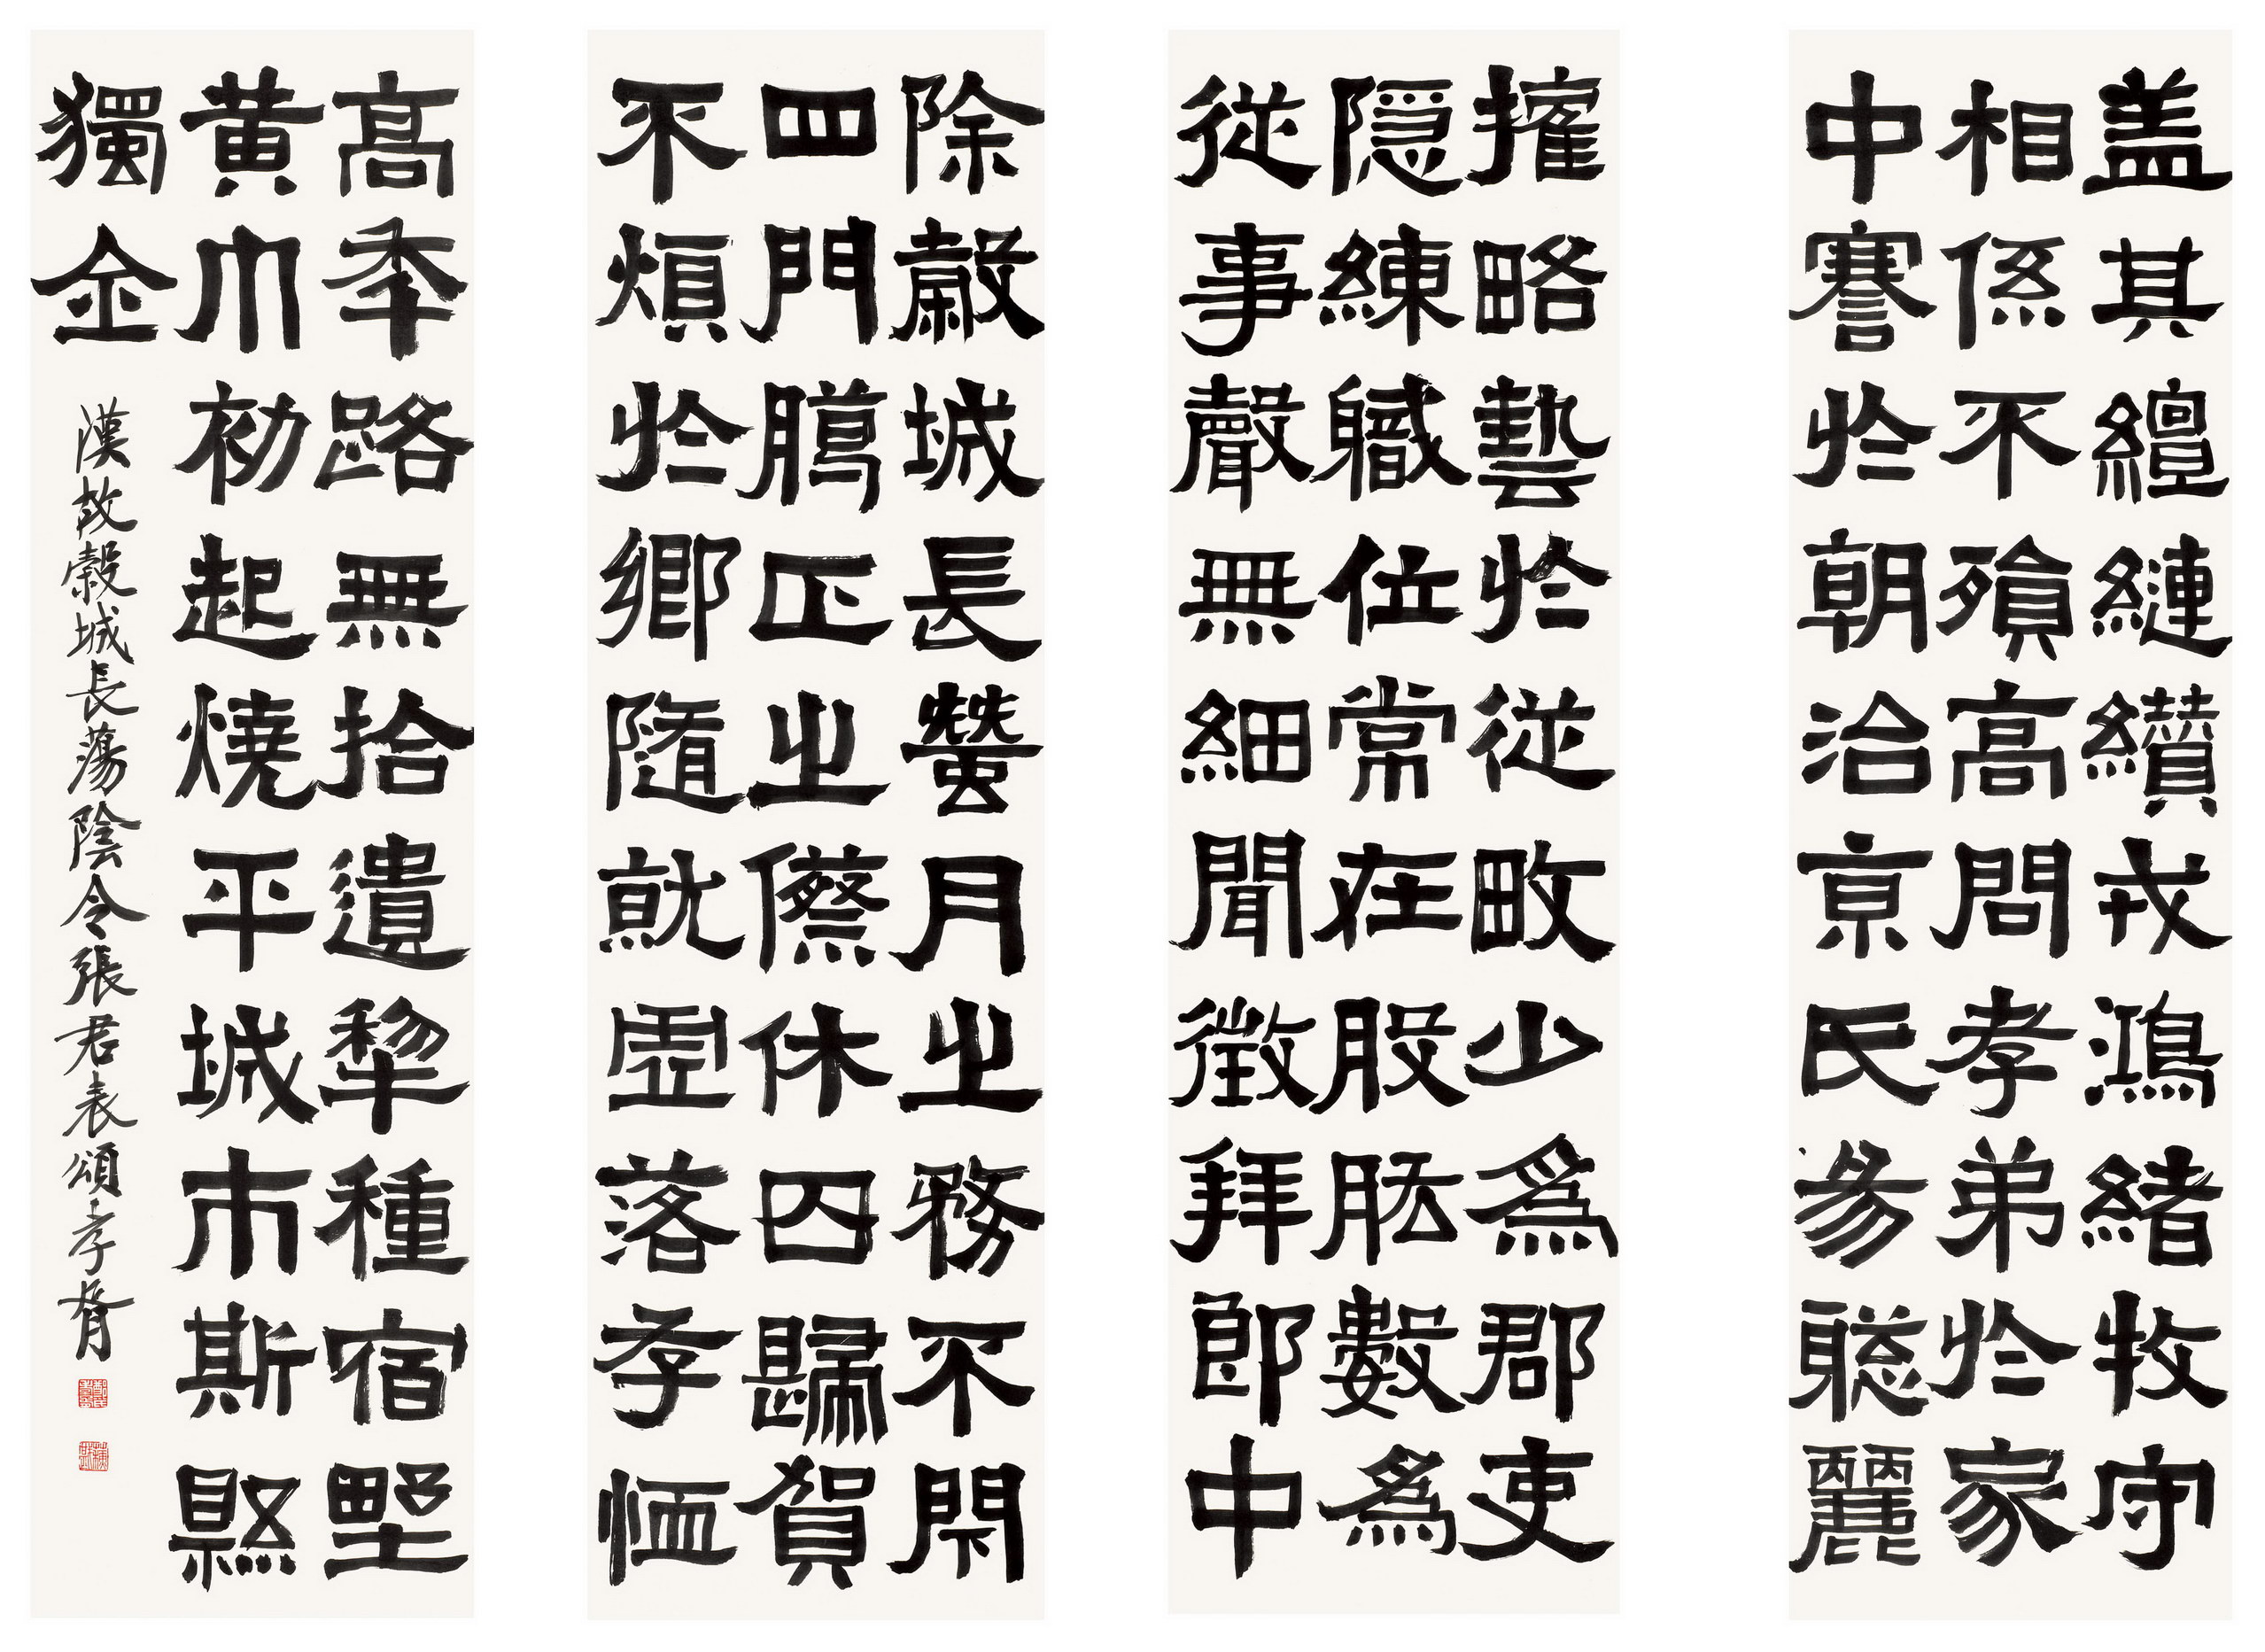 盖其繵縺纉戎鴻緒牧守
相係不殞高問孝弟於家
中謇於朝治京氏昜聦麗
摧略藝於從畋少爲郡吏
隱練軄位常在股肱數爲
從事聲無細聞徵拜郎中
除糓城長蠶月之務不閇
四門臈正之僚休囚歸賀
不煩於鄉隨就虛落存恤
高年路無拾遺犂種宿野
黄巾初起燒平城市斯縣
獨全
漢故穀城長蕩陰令張君表頌 孝胥